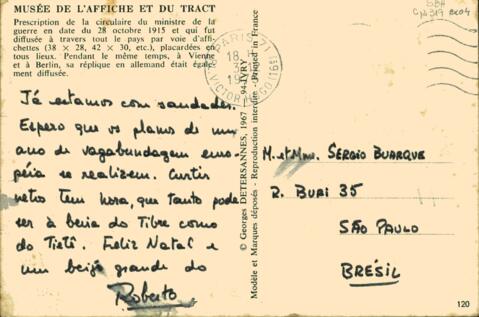 MUSÉE DE L'AFFICHE ET DU TRACT
Prescription de la circulaire du ministre de la
guerre en date du 28 octobre 1915 et qui fut
diffusée à travers tout le pays par voie d'affi-
chettes (38 × 28, 42 × 30, etc.), placardées en
tous lieux. Pendant le même temps, à Vienne
et à Berlin, sa réplique en allemand était égale-
ment diffusée.
Já estamos com saudades.
Espero que os planos de um
ano de vagabundagem euro-
péia se realizem. Curtir
netos tem hora, que tanto pode
ser à beira do Tibre como
do Tietê. Feliz Natal e
um beijo grande do
Roberto
© Georges DETERSANNES, 1967 - 94-IVRY
Modèle et Marques déposés - Reproduction interdite - Printed in France
PARIS 71
18 H
VICTOR HUGO (16E)
M. et Mme. SERGIO BUARQUE
R. BURI 35
SÃO PAULO
BRÉSIL
120